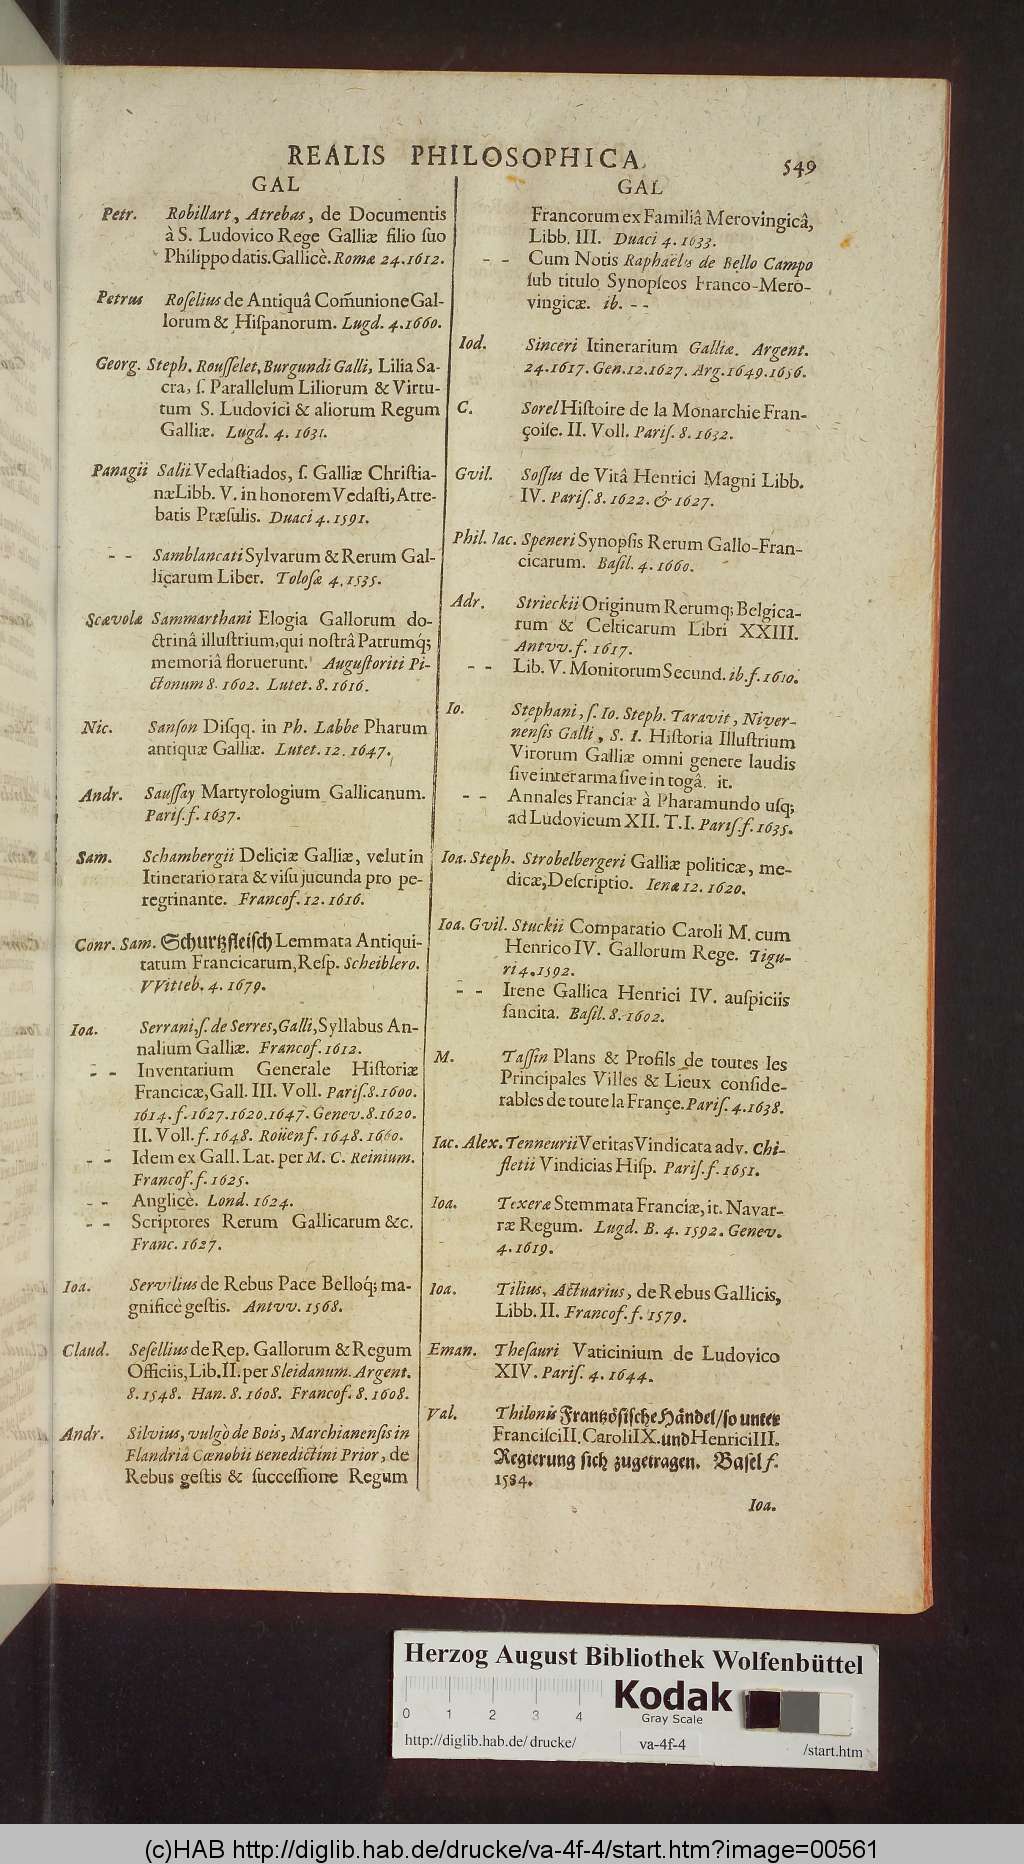 REALIS PHILOSOPHICA.
549
GAL
Petr. Robillart, Atrebas, de Documentis
à S. Ludovico Rege Galliæ filio ſuo
Philippo datis. Gallicè. Romæ 24. 1612.
Petrus Roſelius de Antiquâ Com̃unione Gal-
lorum & Hiſpanorum. Lugd. 4. 1660.
Georg. Steph. Rouſſelet, Burgundi Galli, Lilia Sa-
cra, ſ. Parallelum Liliorum & Virtu-
tum S. Ludovici & aliorum Regum
Galliæ. Lugd. 4. 1631.
Panagii Salii Vedaſtiados, ſ. Galliæ Chriſtia-
næ Libb. V. in honorem Vedaſti, Atre-
batis Præſulis. Duaci 4. 1591.
- - Samblancati Sylvarum & Rerum Gal-
licarum Liber. Toloſæ 4. 1535.
Scævolæ Sammarthani Elogia Gallorum do-
ctrinâ illuſtrium, qui noſtrâ Patrumq́;
memoriâ floruerunt. Auguſtoriti Pi-
ctonum 8. 1602. Lutet. 8. 1616.
Nic. Sanſon Diſqq. in Ph. Labbe Pharum
antiquæ Galliæ. Lutet. 12. 1647.
Andr. Sauſſay Martyrologium Gallicanum.
Pariſ. f. 1637.
Sam. Schambergii Deliciæ Galliæ, velut in
Itinerario rata & viſu jucunda pro pe-
regrinante. Francof. 12. 1616.
Conr. Sam. Schurtzfleiſch Lemmata Antiqui-
tatum Francicarum, Reſp. Scheiblero.
VVitteb. 4. 1679.
Ioa. Serrani, ſ. de Serres, Galli, Syllabus An-
nalium Galliæ. Francof. 1612.
- - Inventarium Generale Hiſtoriæ
Francicæ, Gall. III. Voll. Pariſ. 8. 1600.
1614. f. 1627. 1620. 1647. Genev. 8. 1620.
II. Voll. f. 1648. Roüen f. 1648. 1660.
- - Idem ex Gall. Lat. per M. C. Reinium.
Francof. f. 1625.
- - Anglicè. Lond. 1624.
- - Scriptores Rerum Gallicarum &c.
Franc. 1627.
Ioa. Servilius de Rebus Pace Belloq́; ma-
gnificè geſtis. Antvv. 1568.
Claud. Seſellius de Rep. Gallorum & Regum
Officiis, Lib. II. per Sleidanum. Argent.
8. 1548. Han. 8. 1608. Francof. 8. 1608.
Andr. Silvius, vulgò de Bois, Marchianenſis in
Flandriâ Cœnobii Benedictini Prior, de
Rebus geſtis & ſucceſſione Regum
GAL
Francorum ex Familiâ Merovingicâ,
Libb. III. Duaci 4. 1633.
- - Cum Notis Raphaëlis de Bello Campo
ſub titulo Synopſeos Franco-Mero-
vingicæ. ib. - -
Iod. Sinceri Itinerarium Galliæ. Argent.
24. 1617. Gen. 12. 1627. Arg. 1649. 1656.
C. Sorel Hiſtoire de la Monarchie Fran-
çoiſe. II. Voll. Pariſ. 8. 1632.
Gvil. Soſſus de Vitâ Henrici Magni Libb.
IV. Pariſ. 8. 1622. & 1627.
Phil. Iac. Speneri Synopſis Rerum Gallo-Fran-
cicarum. Baſil. 4. 1660.
Adr. Strieckii Originum Rerumq; Belgica-
rum & Celticarum Libri XXIII.
Antvv. f. 1617.
- - Lib. V. Monitorum Secund. ib. f. 1610.
Io. Stephani, ſ. Io. Steph. Taravit, Niver-
nenſis Galli, S. I. Hiſtoria Illuſtrium
Virorum Galliæ omni genere laudis
ſive inter arma ſive in togâ. it.
- - Annales Franciæ à Pharamundo uſq;
ad Ludovicum XII. T. I. Pariſ. f. 1635.
Ioa. Steph. Strobelbergeri Galliæ politicæ, me-
dicæ, Deſcriptio. Ienæ 12. 1620.
Ioa. Gvil. Stuckii Comparatio Caroli M. cum
Henrico IV. Gallorum Rege. Tigu-
ri 4. 1592.
- - Irene Gallica Henrici IV. auſpiciis
ſancita. Baſil. 8. 1602.
M. Taſſin Plans & Profils de toutes les
Principales Villes & Lieux conſide-
rables de toute la Françe. Pariſ. 4. 1638.
Iac. Alex. Tenneurii Veritas Vindicata adv. Chi-
fletii Vindicias Hiſp. Pariſ. f. 1651.
Ioa. Texeræ Stemmata Franciæ, it. Navar-
ræ Regum. Lugd. B. 4. 1592. Genev.
4. 1619.
Ioa. Tilius, Actuarius, de Rebus Gallicis,
Libb. II. Francof. f. 1579.
Eman. Theſauri Vaticinium de Ludovico
XIV. Pariſ. 4. 1644.
Val. Thilonis Frantzöſiſche Händel / ſo unter
Franciſci II. Caroli IX. und Henrici III.
Regierung ſich zugetragen. Baſel f.
1584.
Ioa.
Herzog August Bibliothek Wolfenbüttel
Kodak
Gray Scale
0 1 2 3 4
http://diglib.hab.de/drucke/ va-4f-4 /start.htm
(c)HAB http://diglib.hab.de/drucke/va-4f-4/start.htm?image=00561